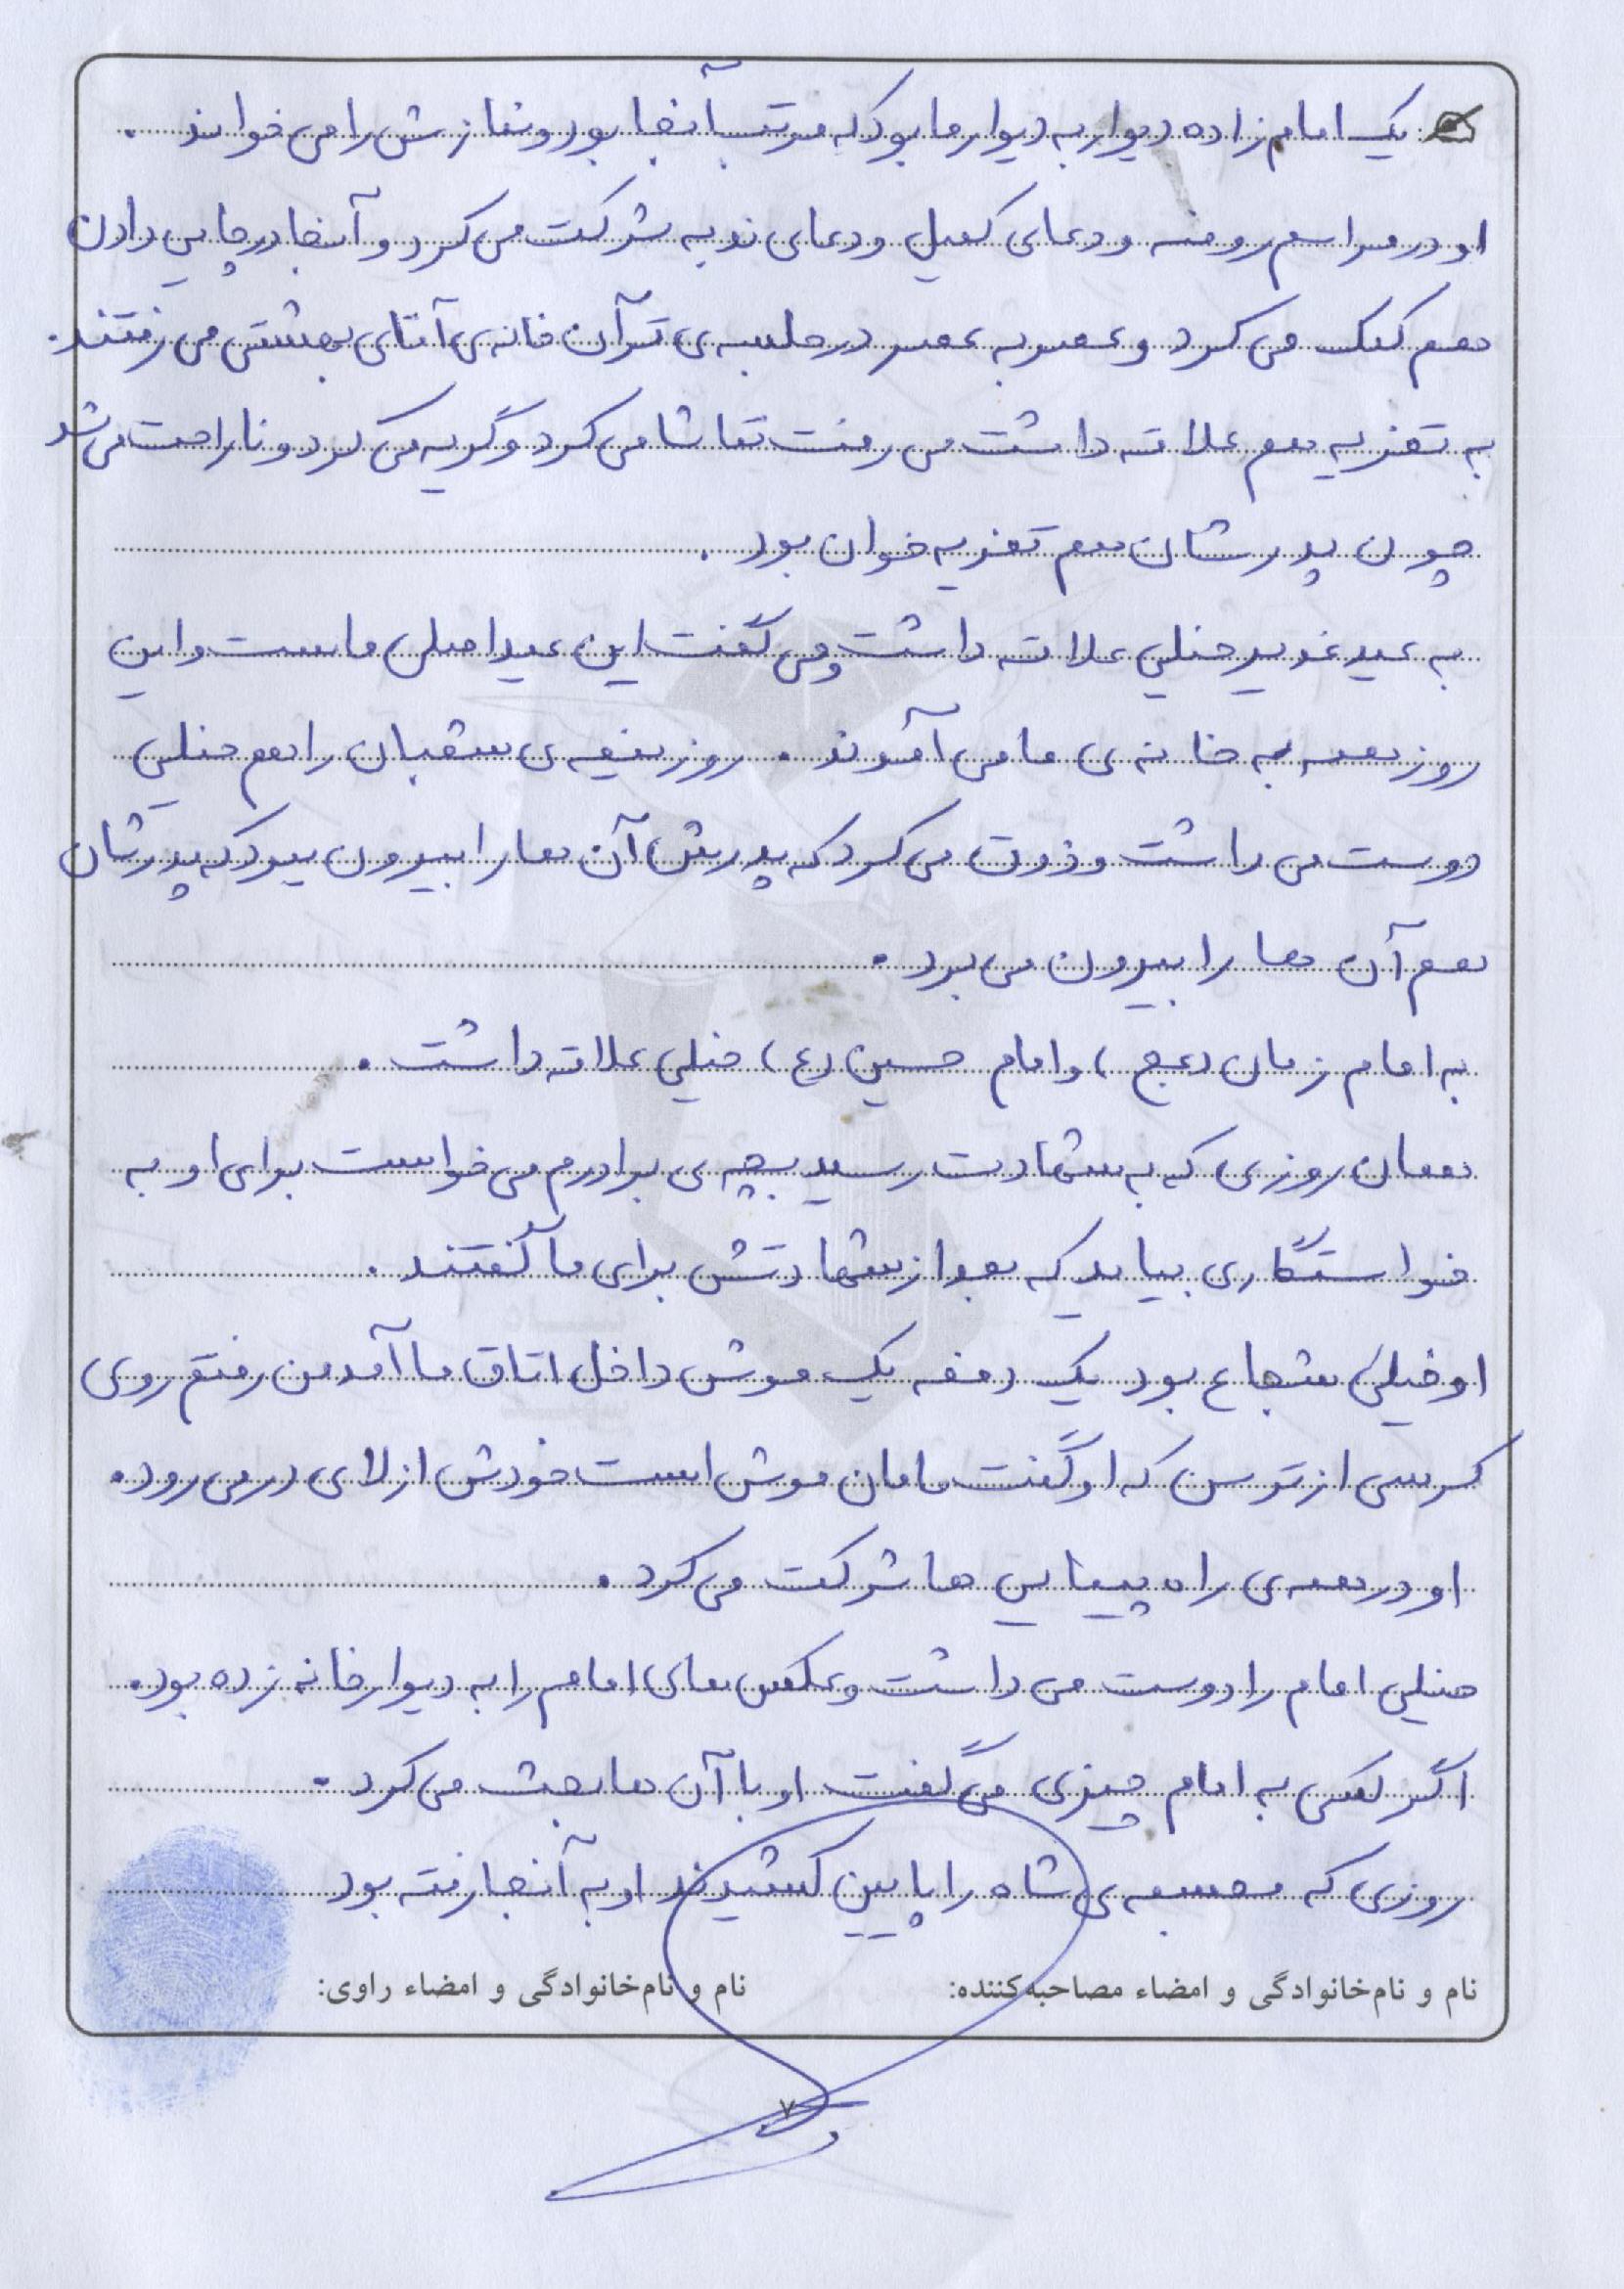 یک امام زاده دیوار به دیوار ما بود که مرتب آنجا بود و نمازش را می خواند.
او در مراسم روضه و دعای کمیل و دعای ندبه شرکت می کرد و آنجا در چایی دادن
هم کمک می کرد و عصر به عصر در جلسه ی قرآن خانه ی آقای بهشتی می رفتند.
به تعزیه هم علاقه داشت می رفت تماشا می کرد و گریه می کرد و ناراحت می شد
چون پدرشان هم تعزیه خوان بود.
به عید غدیر خیلی علاقه داشت و می گفت این عید اصلی ماست و این
روز همه به خانه ی ما می آمدند. روز نیمه ی شعبان را هم خیلی
دوست می داشت و ذوق می کرد که پدرش آن ها را بیرون ببرد که پدرشان
هم آن ها را بیرون می برد.
به امام زمان (عج) و امام حسین (ع) خیلی علاقه داشت.
همان روزی که به شهادت رسید بچه ی برادرم می خواست برای او به
خواستگاری بیاید که بعد از شهادتش برای ما گفتند.
او خیلی شجاع بود یک دفعه یک موش داخل اتاق ما آمد من رفتم روی
کرسی از ترس که او گفت مامان موش است خودش از لای در می رود.
او در همه ی راه پیمایی ها شرکت می کرد.
خیلی امام را دوست می داشت و عکس های امام را به دیوار خانه زده بود.
اگر کسی به امام چیزی می گفت او با آن ها بحث می کرد.
روزی که مجسمه ی شاه را پایین کشیدند او به آنجا رفته بود
نام و نام‌خانوادگی و امضاء مصاحبه‌کننده: نام و نام‌خانوادگی و امضاء راوی:
۷